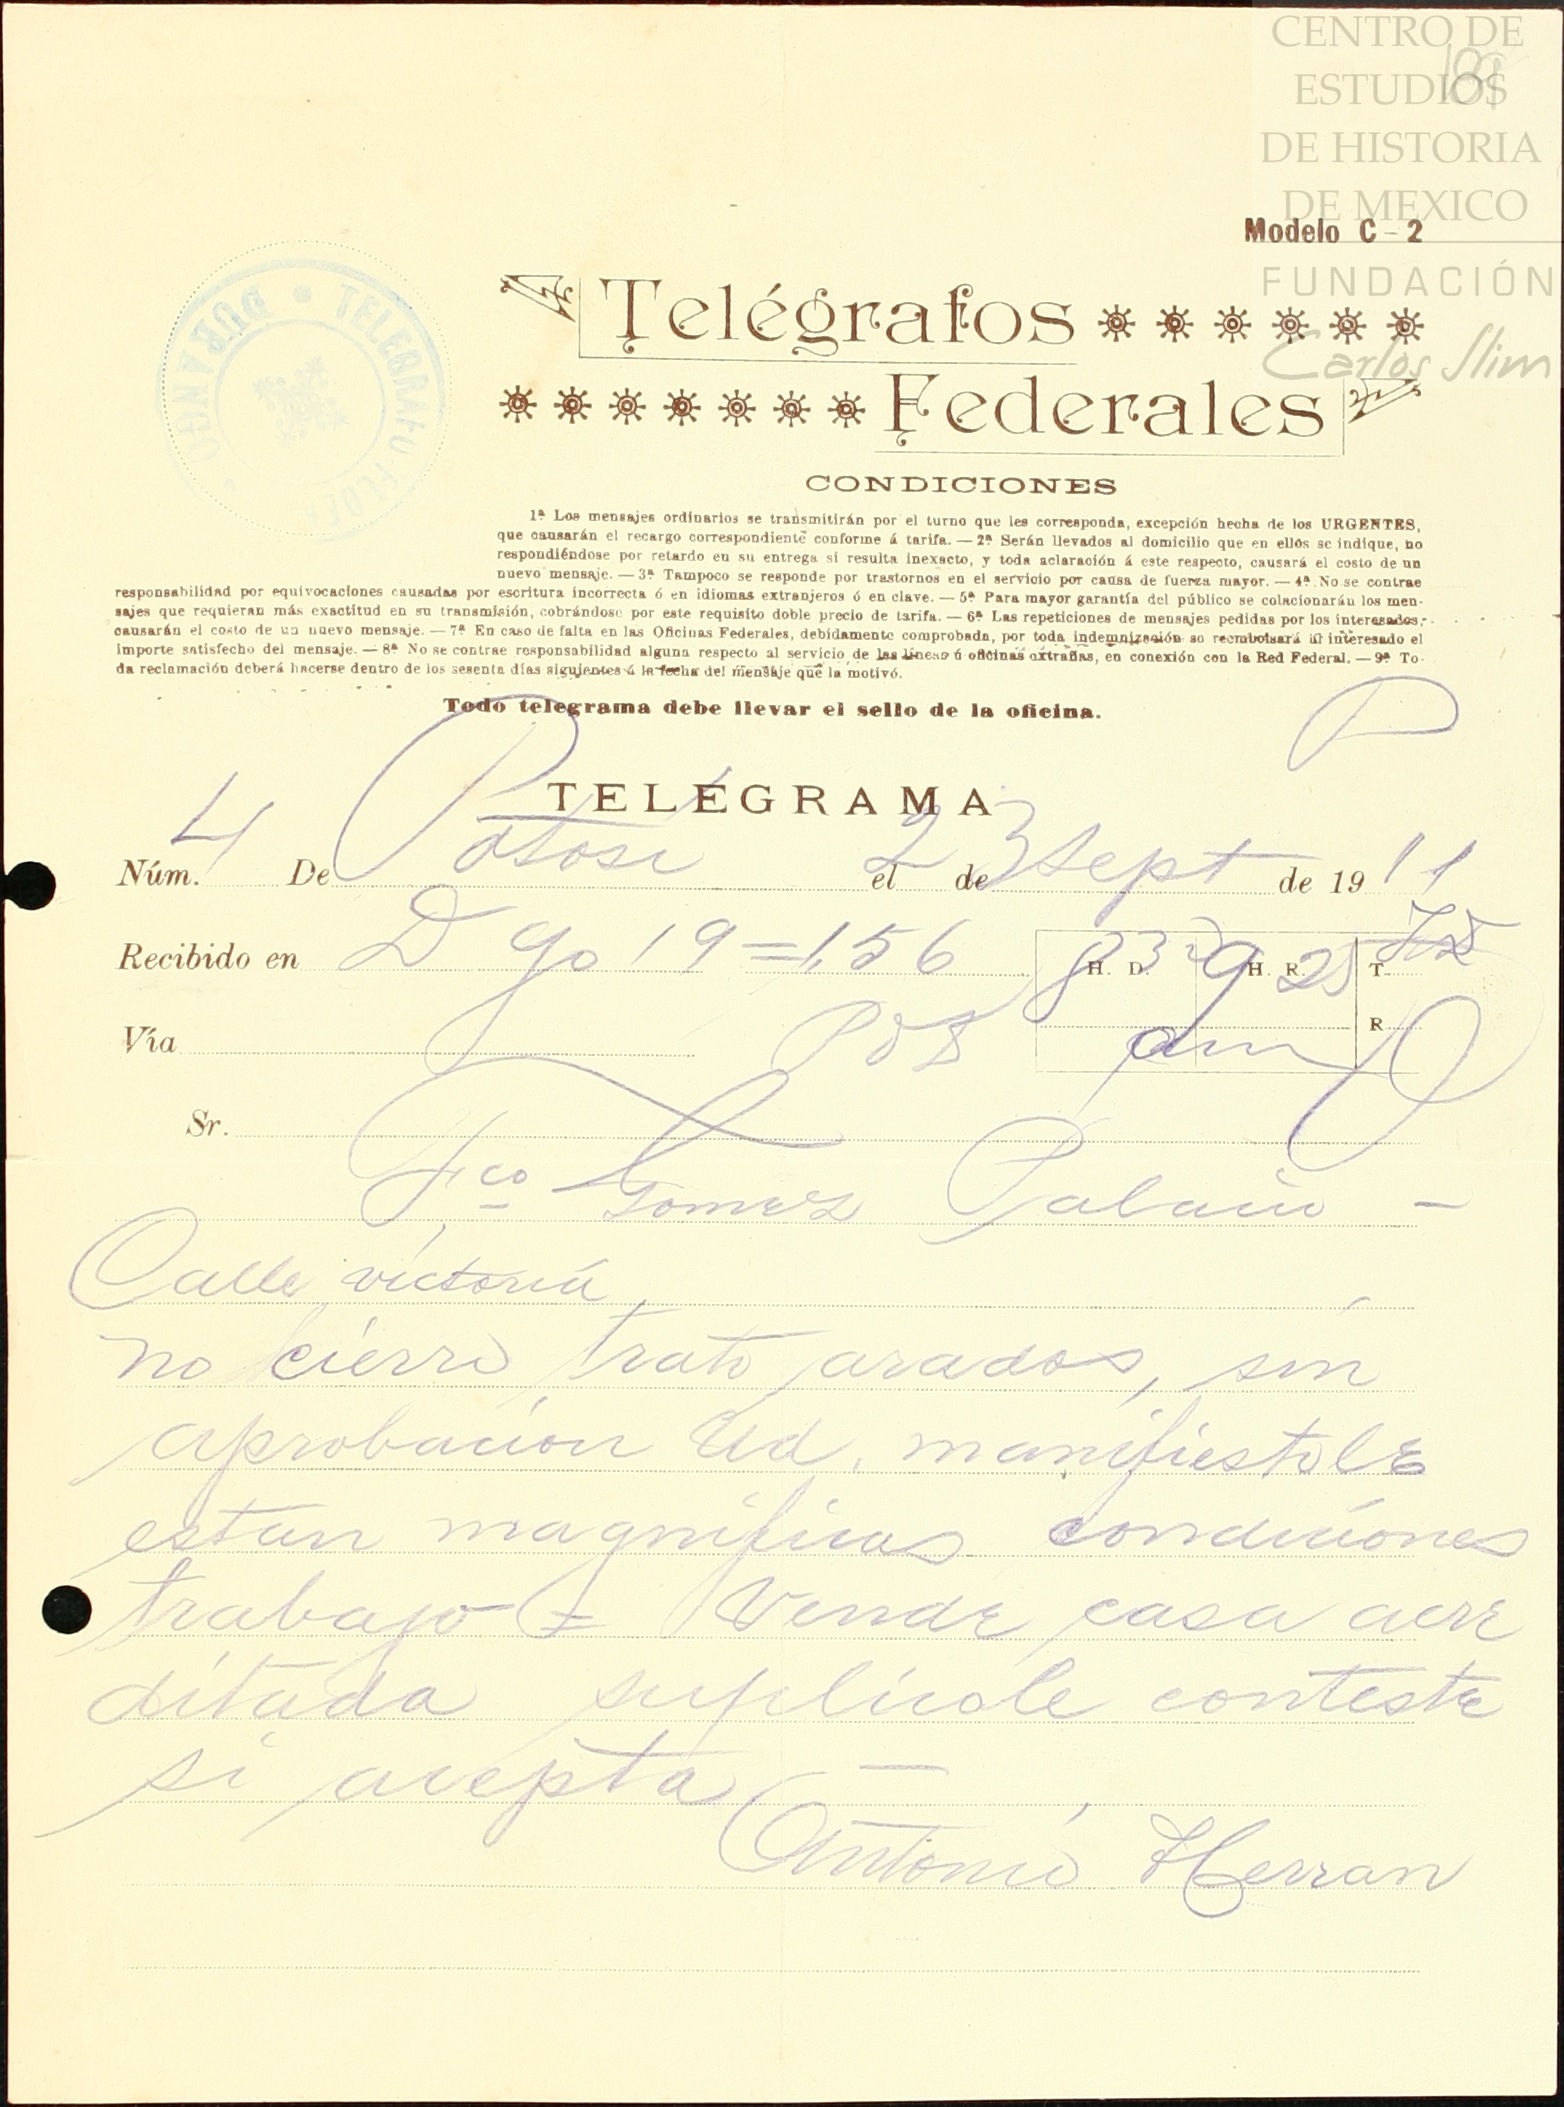 CENTRO DE
ESTUDIOS
DE HISTORIA
DE MEXICO
Modelo C-2
FUNDACIÓN
Carlos Slim
Telégrafos
Federales
TELEGRAFO FEDE
DURANGO
CONDICIONES
1ª Los mensajes ordinarios se transmitirán por el turno que les corresponda, excepción hecha de los URGENTES,
que causarán el recargo correspondiente conforme á tarifa. — 2ª Serán llevados al domicilio que en ellos se indique, no
respondiéndose por retardo en su entrega si resulta inexacto, y toda aclaración á este respecto, causará el costo de un
nuevo mensaje. — 3ª Tampoco se responde por trastornos en el servicio por causa de fuerza mayor. — 4ª No se contrae
responsabilidad por equivocaciones causadas por escritura incorrecta ó en idiomas extranjeros ó en clave. — 5ª Para mayor garantía del público se colacionarán los men-
sajes que requieran más exactitud en su transmisión, cobrándose por este requisito doble precio de tarifa. — 6ª Las repeticiones de mensajes pedidas por los interesados,
causarán el costo de un nuevo mensaje. — 7ª En caso de falta en las Oficinas Federales, debidamente comprobada, por toda indemnización se reembolsará al interesado el
importe satisfecho del mensaje. — 8ª No se contrae responsabilidad alguna respecto al servicio de las líneas ú oficinas extrañas, en conexión con la Red Federal. — 9ª To-
da reclamación deberá hacerse dentro de los sesenta días siguientes á la fecha del mensaje que la motivó.
Todo telegrama debe llevar el sello de la oficina.
P
TELEGRAMA
Núm. 4 De Potosi el 23 de Sept de 1911
Recibido en Dgo 19 = 1,56 H. D. 8 32 H. R. 9 25 T.
Vía am R
Sr.
Fco Gomez Palacio -
Calle victoria
no cierro trato arados, sin
aprobacion Ud. manifiestole
estan magnificas condiciones
trabajo = Vende casa acre
ditada suplicole conteste
si acepta —
Antonio Herran